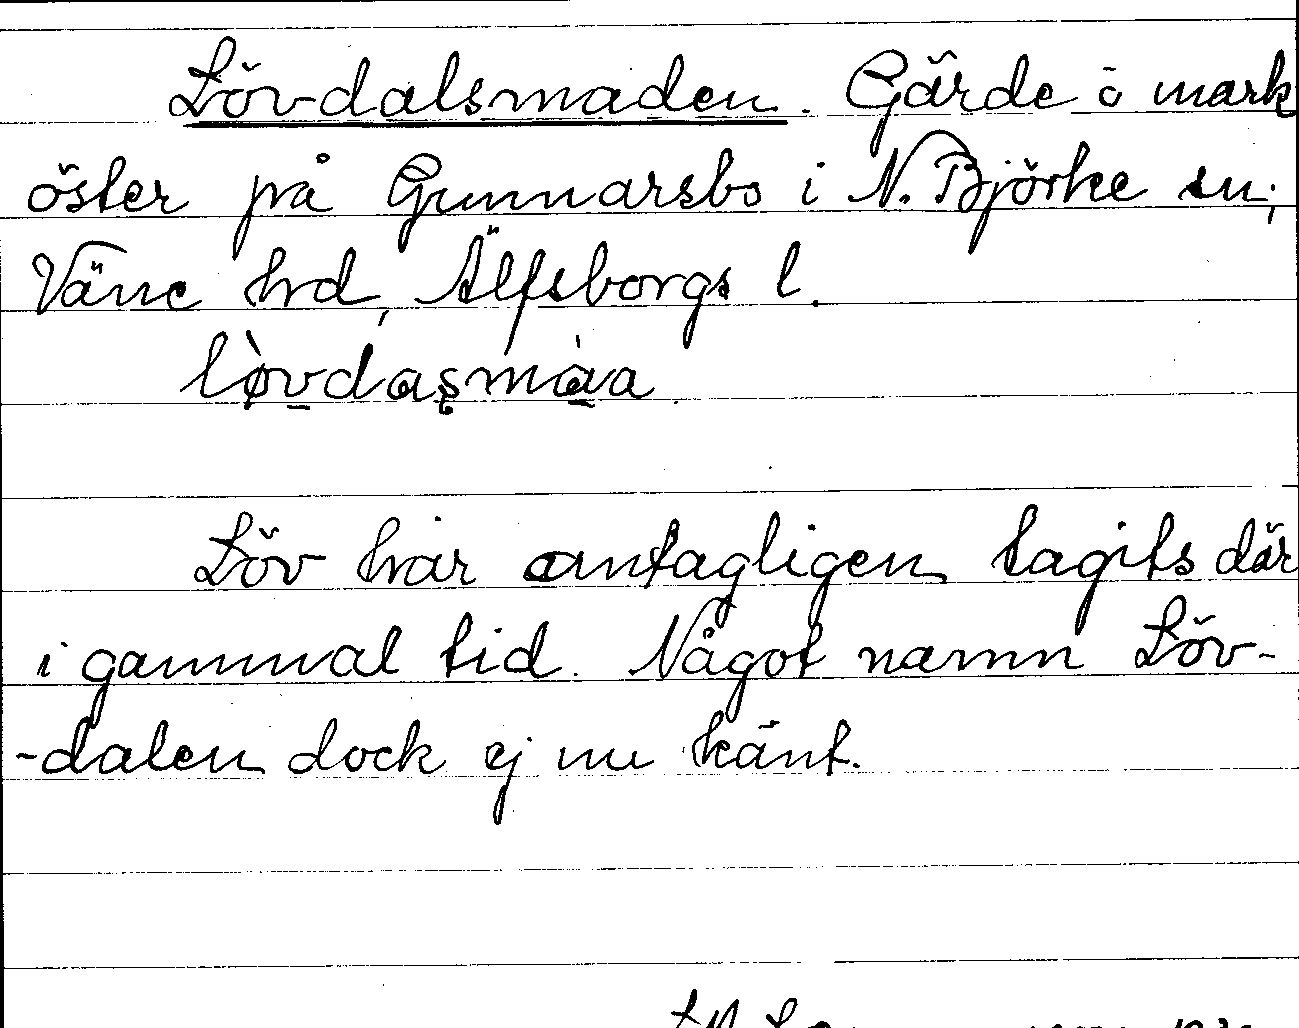 Lövdalsmaden. Gärde o mark
öster på Gunnarsbo i N. Björke sn,
Väne hrd, Älfsborgs l.
lo̤vdasmåa
Löv har antagligen tagits där
i gammal tid. Något namn Löv-
-dalen dock ej nu känt.